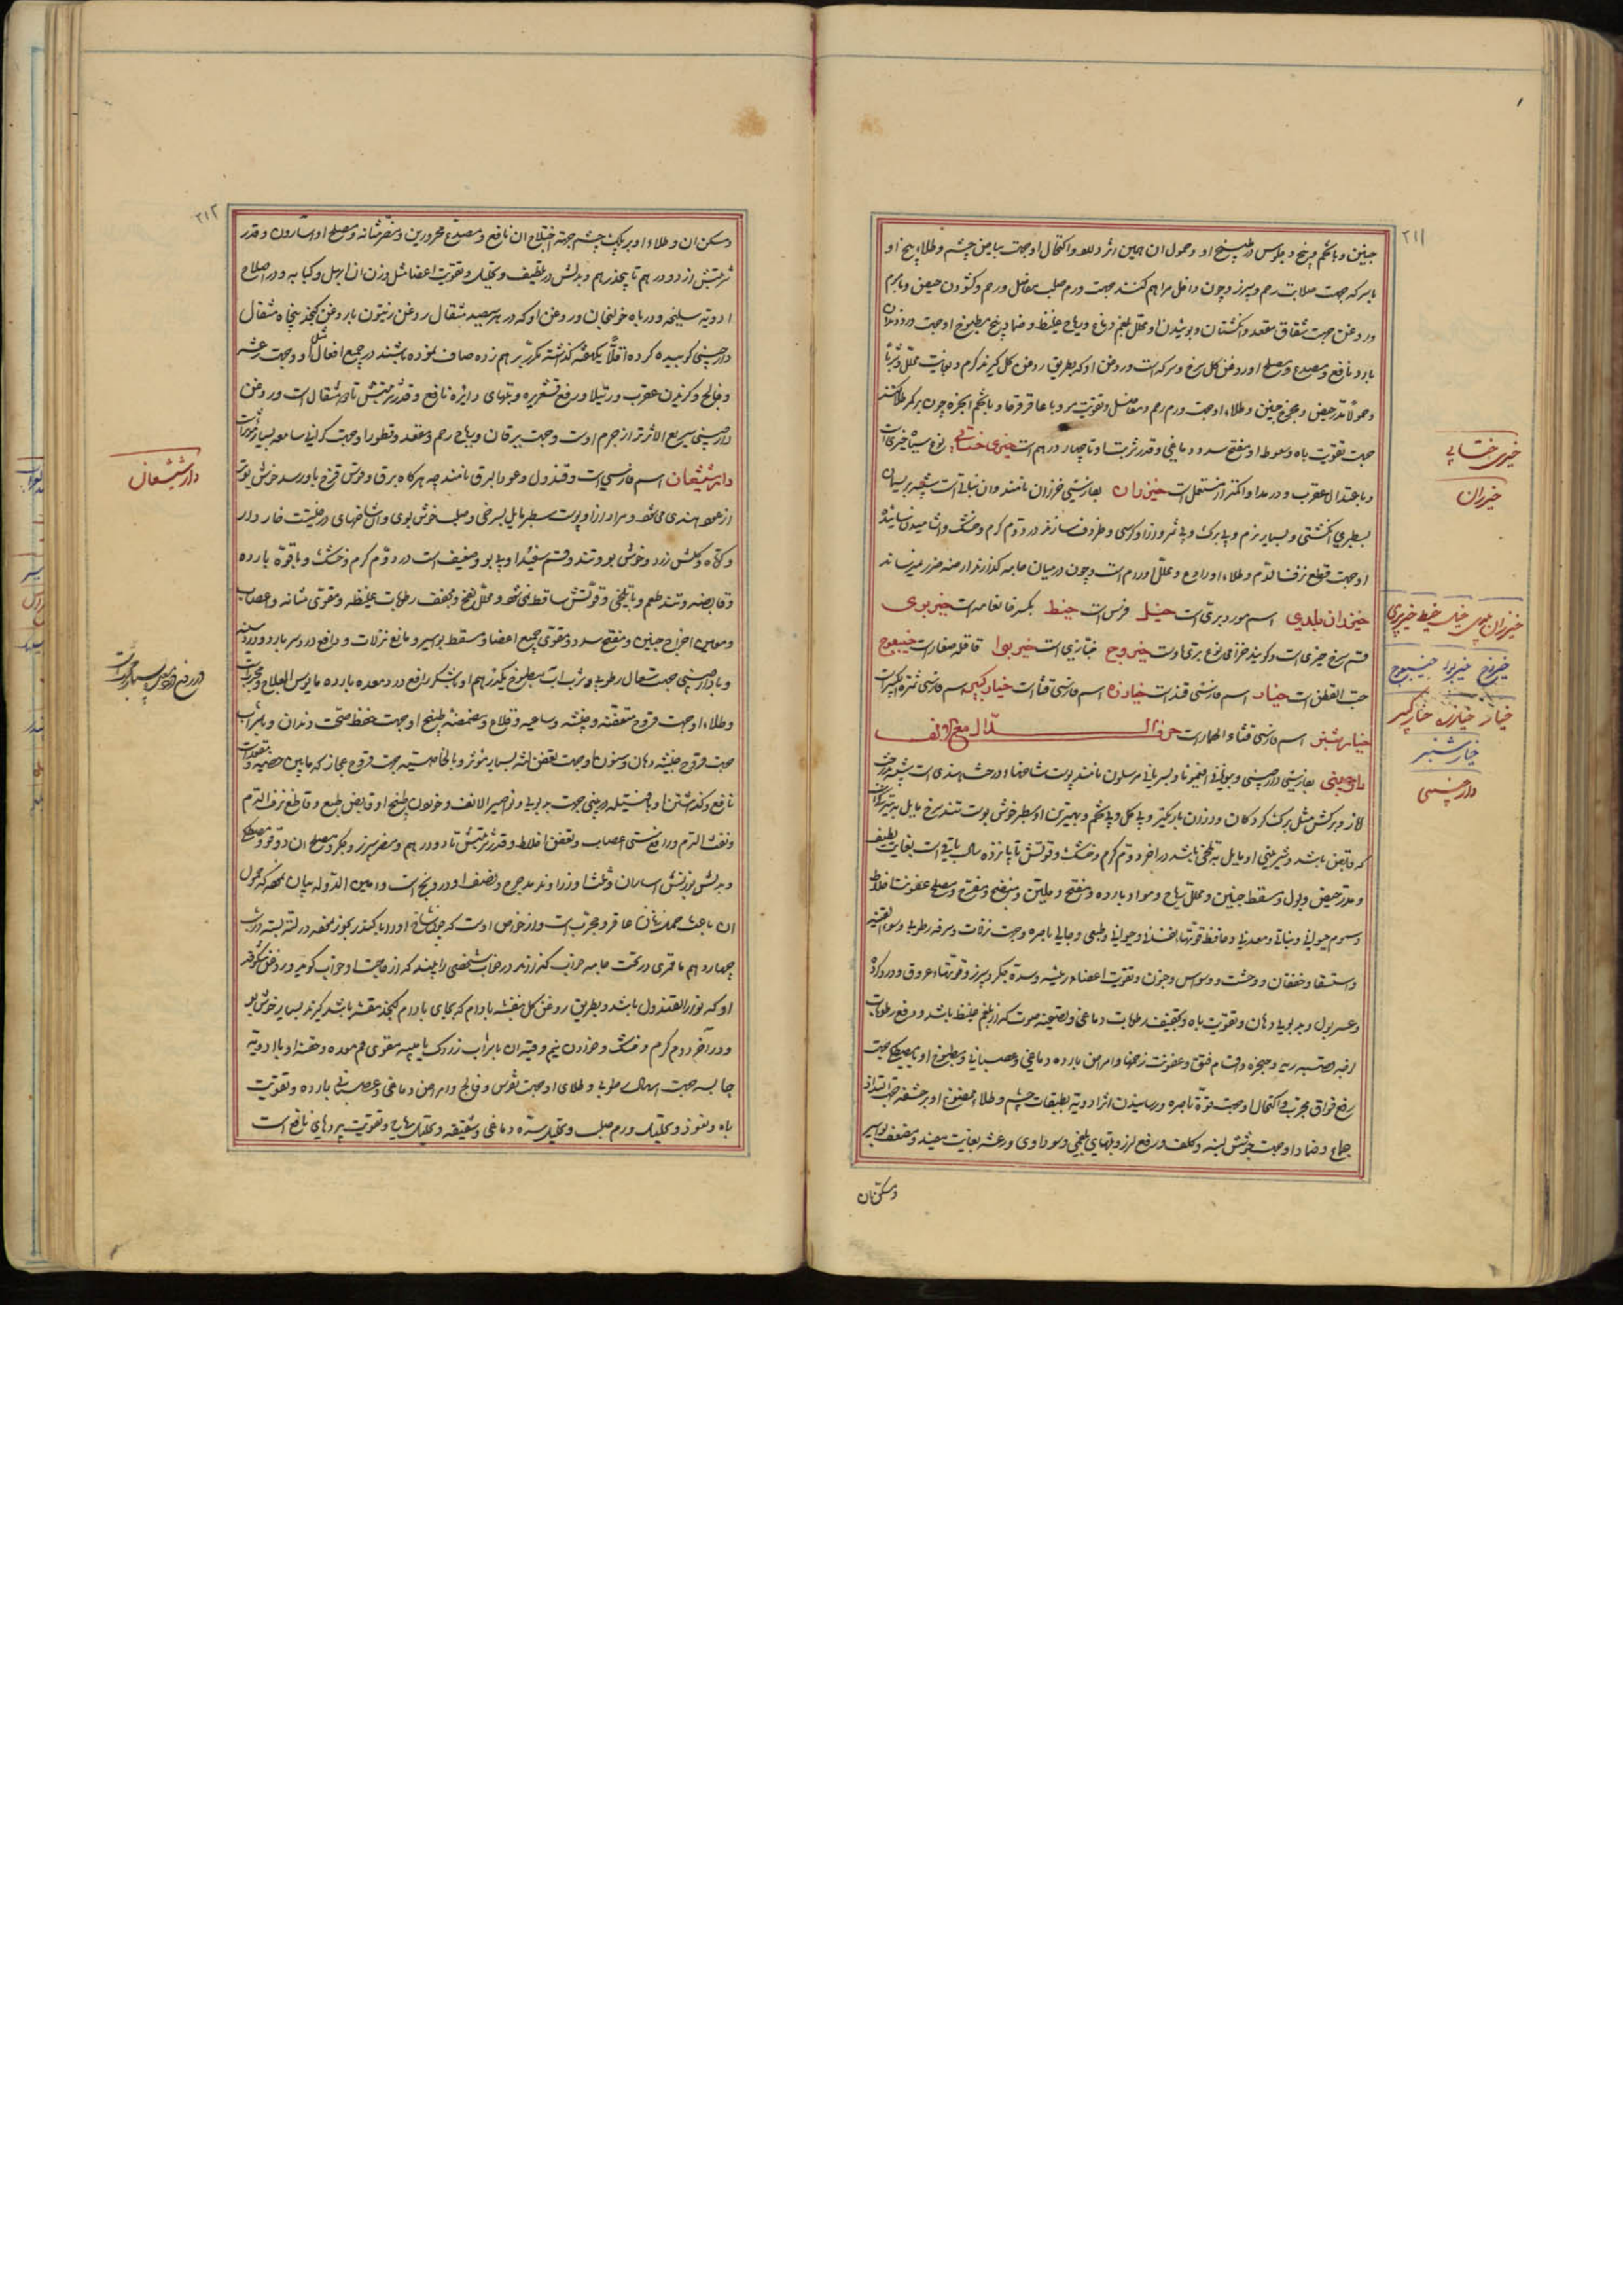 ۲۱۱
جنین و با تخم و بیخ و جلوس در طبیخ او و حمول ان همین اثر دارد و اکتحال او جهت بیاض چشم و طلاء بیخ او
با سرکه جهت صلابت رحم و سپرز و چون داخل مراهم کنند جهت ورم صلب مفاصل و رحم و کشودن حیض و با موم
و روغن جهت شقاق مقعد و انکشتان و بوئیدن او محلل بلغم دماغ و ریاح غلیظ و ضماد بیخ مطبوخ او جهت درد دندان
بارد نافع و مصدع و مصلح او روغن کل سرخ و سرکه است و روغن او که بطریق روغن کل کیرند کرم و بغایت محلل و شربا
و حمولا مدر حیض و مخرج جنین و طلاء او جهت ورم رحم و مفاصل و تقویت مو و با عاقرقرحا و با تخم انجره چون بر کمر طلا کنند
جهت تقویت باه و سعوط او مفتح سدد دماغی و قدر شربتش تا چهار درهم است خیری خطایی نوع سیاه خیری است
و با اعتدال عقرب و در مداوا کمتر از مستعمل است خیزران بفارسی خزران نامند و ان نباتی است شبیه بریسمان
بسطبری انکشتی و بسیار نرم و بی برک و بی ثمر و از او کرسی و ظروف سازند در دوم کرم و خشک و اشامیدن سائیده
او جهت قطع نزف الدم و طلاء او رادع و محلل اورام است و چون در میان جامه کذارند از ارضه ضرر نمیرساند
خیزران بلدی اسم مورد بری است خیل فرس است خیط بکسر خا نعامه است خیر بری
قسم سرخ خیری است و کویند خزامی نوع بری اوست خیروج خبازی است خیربوا قاقله صغار است خیسفوج
حب القطن است خیار اسم فارسی قثد است خیارزه اسم فارسی قثا است خیار کبر اسم فارسی ثمره کبر است
خیار شنبر اسم فارسی قثاء الهند است حرف الدال مع الالف
دارچینی بفارسی دارچینی و بیونانی افیمونا و بسریانی مرسلون نامند پوست شاخهای درخت هندی است شبیه بدرخت
انار و برکش مثل برک کردکان و از ان باریکتر و بی کل و بی تخم و بهترین او سطبر خوش بوست تند سرخ مایل به تیرکی
که قابض باشد و شیرینی او مایل به تلخی باشد در اخر دوم کرم و خشک و قوتش تا پانزده سال باقی است بغایت لطیف
و مدر حیض و بول و مسقط جنین و محلل ریاح و مواد بارده و مفتح و ملین و منضج و مفرح و مصلح عفونت اخلاط
و سموم حیوانی و نباتی و معدنی و حافظ قوتهای نفسانی و حیوانی و طبیعی و جالی باصره و جهت نزلات و سرفه رطوبی و سوء القنیه
و استسقا و خفقان و وحشت و وسواس و جنون و تقویت اعضاء رئیسه و سده جکر و سپرز و قوتهاء عروق و درد کرده
و عسر بول و بدبویی دهان و تقویت باه و تجفیف رطوبات دماغی و تصفیه صوت که از بلغم غلیظ باشد و رفع رطوبات
رفع فواق مجرب و اکتحال او جهت قوة باصره و رسانیدن اثر ادویه بطبقات چشم و طلاء ممضوغ او بر حشفه جهت التذاذ
جماع و ضماد او جهت جوشش لبنه و کلف و رفع لرز و تبهای بلغمی و سوداوی و رعشه بغایت مفید و مضعف بواسیر
و مسکن ان
خیری خطایی
خیزران
خیزران بلدی خیل خیط خیر بری
خیروج خیربوا خیسفوج
خیار خیارزه خیار کبر
خیار شنبر
دارچینی
۲۱۲
و مسکن ان و طلاء او بر پلک چشم جهت اختلاج ان نافع و مصدع محرورین و مضر مثانه و مصلح او اسارون و قدر
شربتش از دو درهم تا پنجدرهم و بدلش در تلطیف و تحلیل و تقویت اعضا مثل وزن ان ابهل و کبابه و در اصلاح
ادویه سلیخه و در باه خولنجان و روغن او که در هر سیصد مثقال روغن زیتون یا روغن کنجد پنجاه مثقال
دارچینی کوبیده کرده اقلا یکهفته کذاشته مکرر بر هم زده صاف نموده باشند در جمیع افعال مثل او و جهت رعشه
و فالج و کزیدن عقرب و رتیلا و رفع قشعریره و تبهای دایره نافع و قدر شربتش تا ده مثقال است و روغن
دارچینی سریع الاثرتر از جرم اوست و جهت یرقان و ریاح رحم و مقعد و قطور او جهت کرانی سامعه بسیار مؤثر است
دارشیشعان اسم فارسی است و قندول و عود البرق نامند چه هرکاه برق و قوس قزح باو رسد خوش بو شود
ازعود هندی می باشد و مراد از او پوست سطبر مایل بسرخی و صلب خوش بوی و ان شاخهای درختیست خار دار
و کوتاه و کلش زرد و خوش بو و تند و قسم سفید او بی بو و ضعیف است در دوم کرم و خشک و با قوة بارده
و قابضه و تند طعم و با تلخی و قوتش ساقط نمی شود و محلل نفخ و مجفف رطوبات غلیظه و مقوی مثانه و اعصاب
و معین اخراج جنین و مفتح سدد و مقوی جمیع اعضا و مسقط بواسیر و مانع نزلات و دافع درد سر بارد و درد سینه
و با دارچینی جهت سعال رطوبی و شراب اب مطبوخ یکدرهم او با شکر رافع درد معده بارده مایوس العلاج و مجرب است
و طلاء او جهت قروح متعفنه و خبیثه و ساعیه و قلاع و مضمضه بطبیخ او جهت حفظ صحت دندان و با شراب
جهت قروح خبیثه دهان و سنون او جهت تعفن لثه بسیار مؤثر و بالخاصیه جهت قروح عجان که مابین خصیه و مقعد است
نافع و کذاشتن او با فتیله در بینی جهت بدبویی و نواصیر الانف و خوردن طبیخ او قابض طبع و قاطع نزف الدم
و نفث الدم و رافع سستی اعصاب و تعفن اخلاط و قدر شربتش تا دو درهم و مضر سپرز و جکر و مصلح ان دوقو و مصطکی
و بدلش بوزنش اسارون و ثلث او زراوند مدحرج و نصف او درونج است و امین الدوله بیان نموده که حمول
ان باعث حمل زنان عاقر و مجرب است و از خواص اوست که چون شاخه او را با کندر بخور نموده در لته بسته در شب
چهاردهم ماه قمری در تحت جامه خواب کذارند در خواب شخصی را بیند که از حاجت او جواب کوید و روغن شکوفه
او که نوار القندول باشد و بطریق روغن کل بنفشه بادام که بجای بادام کنجد مقشر باشد کیرند بسیار خوش بو
و در اخر دوم کرم و خشک و خوردن نیم وقیه ان با شراب زردک یا میبه مقوی فم معده و حقنه او با ادویه
حابسه جهت اسهال رطوبی و طلای او جهت نقرس و فالج و امراض دماغی و عصبانی بارده و تقویت
باه و نعوظ و تحلیل ورم صلب و تحلیل سده دماغی و شقیقه و تحلیل ریاح و تقویت پردهای نافع است
دارشیشعان